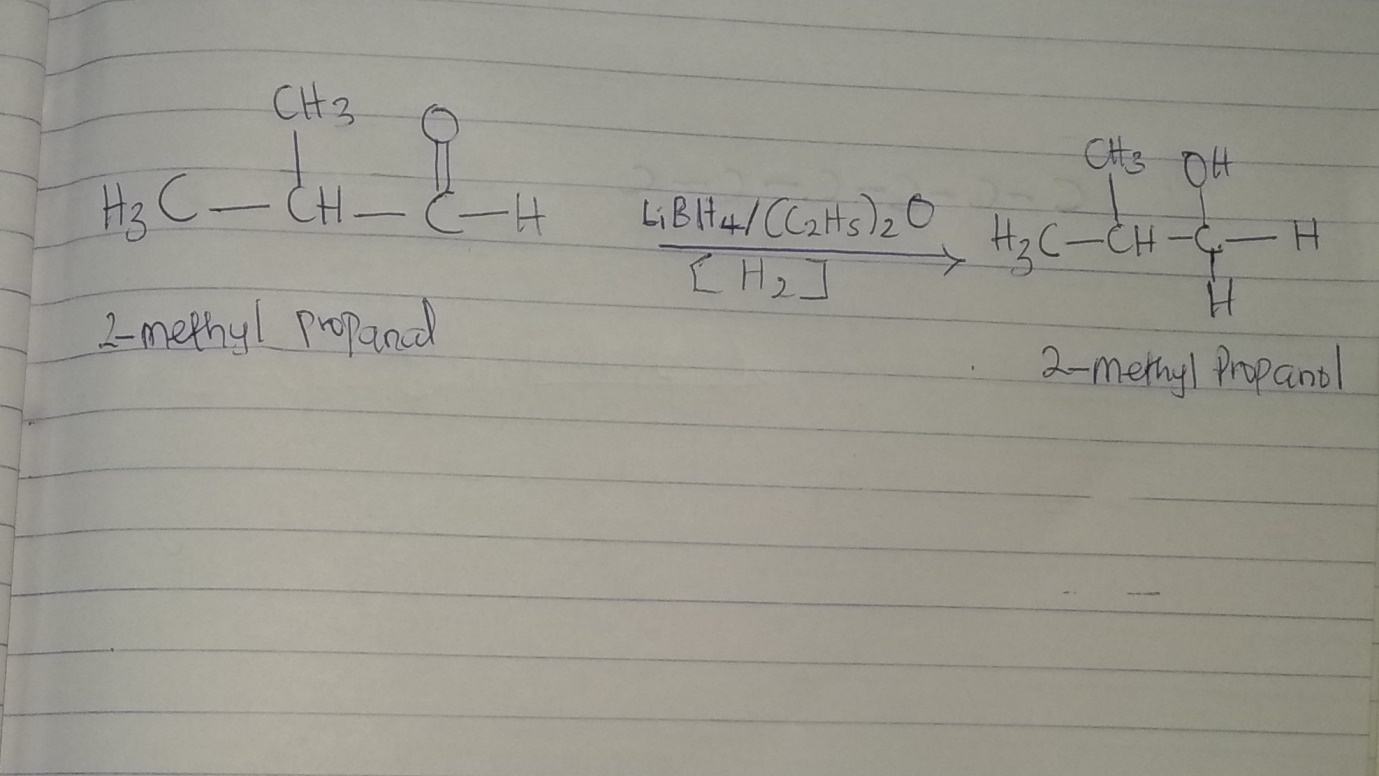 CH3 O
H3C—CH—C—H LiBH4/(C2H5)2O
[H2]
CH3 OH
H3C—CH—C—H
H
2-methyl propanal
2-methyl Propanol